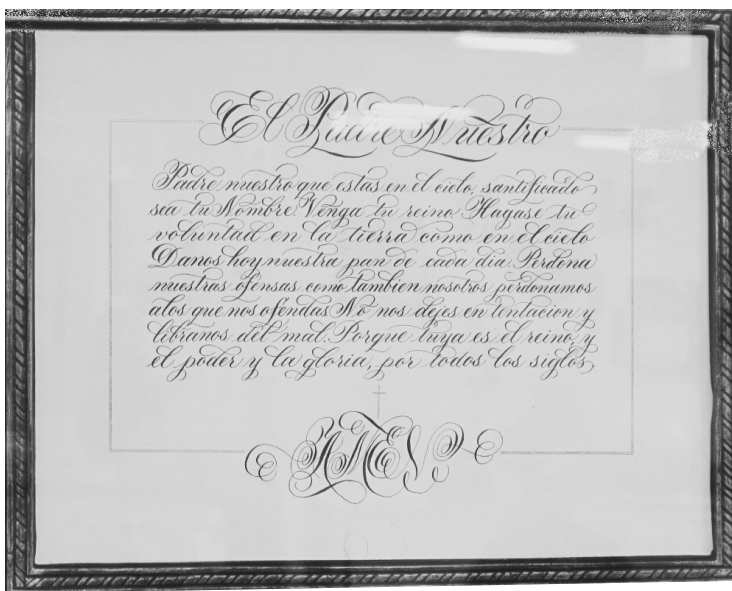 El Padre Nuestro
Padre nuestro que estas en él cielo, santificado
sea tu Nombre. Venga tu reino Hagase tu
voluntad en la tierra como en él cielo
Danos hoy nuestra pan de cada dia. Perdona
nuestras ofensas como tambien nosotros perdonamos
alos que nos ofendas No nos dejes en tentacion y
libranos dél mal. Porque tuya es él reino, y
él poder y la gloria, por todos los siglos,
AMEN.